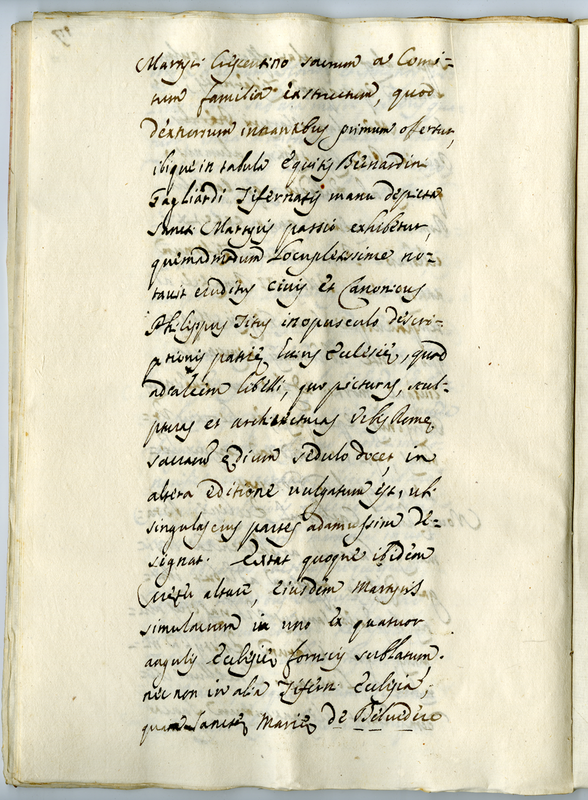 Martyri Crescentino sacrum a Comi=
tum familia extructum, quod
dextrorsum intrantibus primum offertur,
ibique in tabula Equitis Bernardini
Gagliardi Tifernatis manu depicta
Sancti Martyris passio exhibetur,
quemadmodum locupletissime no=
tavit eruditus civis et Canonicus
Philippus Titus in opusculo descri=
ptionis patrię huius Ecclesię, quod
ad calcem libelli, quo picturas, scul=
pturas et architecturas Urbis Romę
sacrarum ędium sedulo docet in
altera editione vulgatum est, ubi
singulas eius partes adamussim de=
signat. Extat quoque ibidem
ejusdem Martyris
simulacrum in uno ex quatuor
angulis Ecclesię fornicis sublatum.
nec non in alia Tifern. Ecclesia,
quam Sanctę Marię de Belvedere